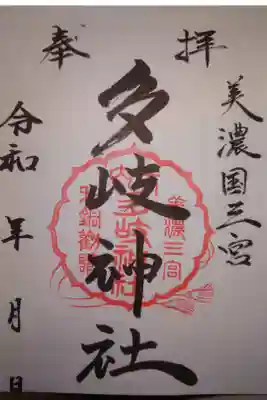 奉拝
美濃国三宮
多岐神社
令和 年 月 日
美濃三宮
多岐神社